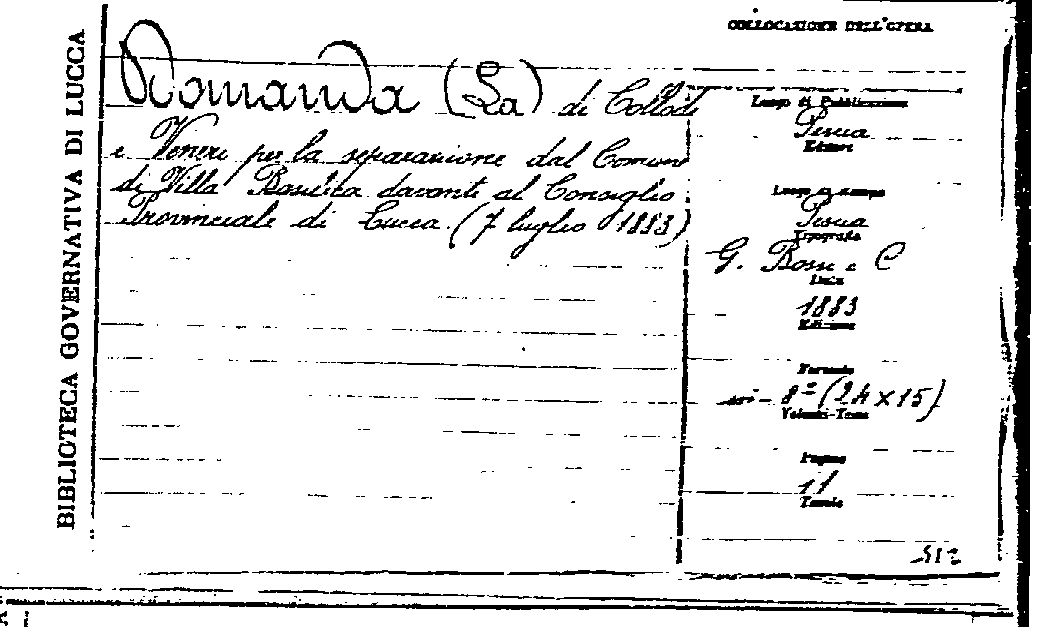 BIBLIOTECA GOVERNATIVA DI LUCCA
Domanda (La) di Collodi
e Veneri per la separazione dal Comune
di Villa Basilica davanti al Consiglio
Provinciale di Lucca (7 luglio 1883)
COLLOCAZIONE DELL'OPERA
Luogo di Pubblicazione
Pescia
Editore
Luogo di stampa
Pescia
Tipografia
G. Rossi e C
Data
1883
Edizione
Formato
in-8º (24x15)
Volumi-Tomo
Pagine
11
Tavole